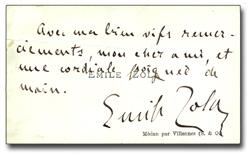 Avec mes bien vifs remer-
ciements, mon cher ami, et
une cordiale poignée de
main.
EMILE ZOLA
Emile Zola
Médan par Villennes (S. & O.)